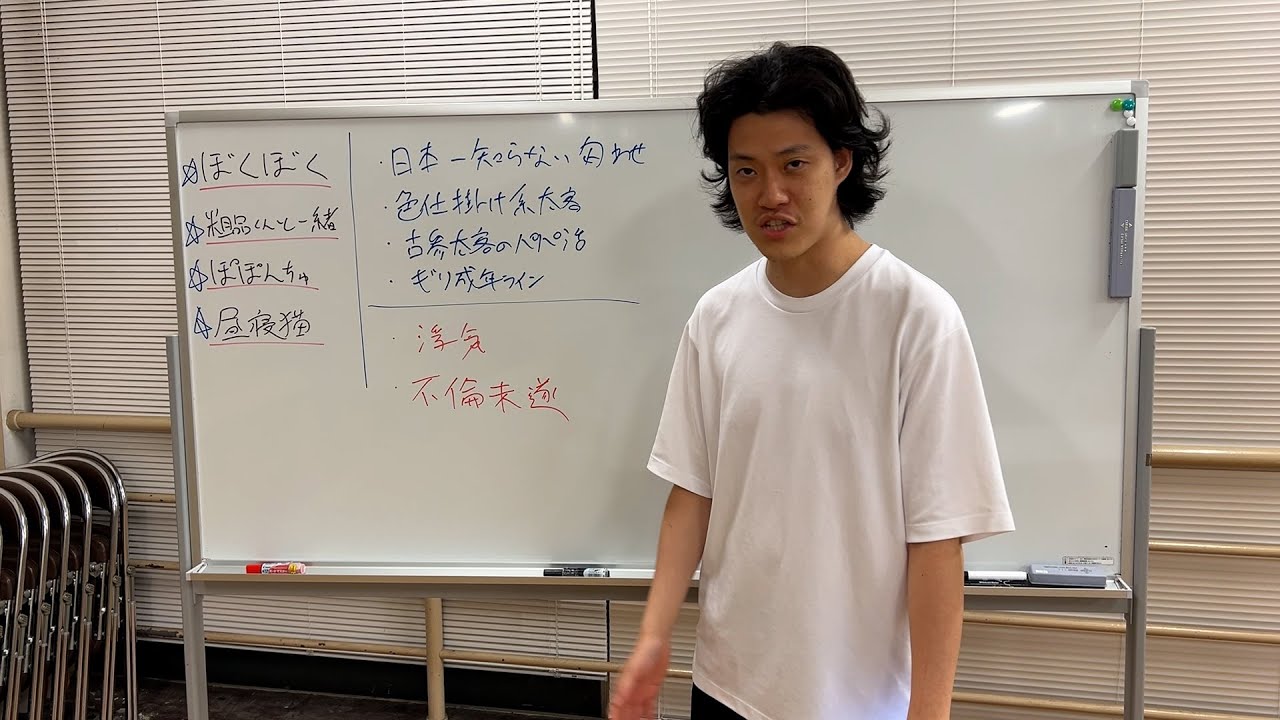 ☆ぼくぼく
☆粗品くんと一緒
☆ぽぽんちゅ
☆昼寝猫
・日本一知らない匂わせ
・色仕掛け系太客
・古参太客のパペ活
・ギリ成年ライン
・浮気
・不倫未遂